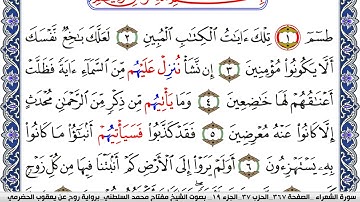 طسٓمٓ ١ تِلْكَ ءَايَٰتُ ٱلْكِتَٰبِ ٱلْمُبِينِ ٢ لَعَلَّكَ بَٰخِعٌ نَّفْسَكَ
أَلَّا يَكُونُوا۟ مُؤْمِنِينَ ٣ إِن نَّشَأْ نُنزِلْ عَلَيْهُم مِّنَ ٱلسَّمَآءِ ءَايَةً فَظَلَّتْ
أَعْنَٰقُهُمْ لَهَا خَٰضِعِينَ ٤ وَمَا يَأْتِيهُم مِّن ذِكْرٍ مِّنَ ٱلرَّحْمَٰنِ مُحْدَثٍ
إِلَّا كَانُوا۟ عَنْهُ مُعْرِضِينَ ٥ فَقَدْ كَذَّبُوا۟ فَسَيَأْتِيهُمْ أَنۢبَٰٓؤُا۟ مَا كَانُوا۟
بِهِۦ يَسْتَهْزِءُونَ ٦ أَوَلَمْ يَرَوْا۟ إِلَى ٱلْأَرْضِ كَمْ أَنۢبَتْنَا فِيهَا مِن كُلِّ زَوْجٍ
سورة الشعراء . الصفحة ٣٦٧ . الحزب ٣٧ . الجزء ١٩ . بصوت الشيخ مفتاح محمد السلطني . برواية روح عن يعقوب الحضرمي